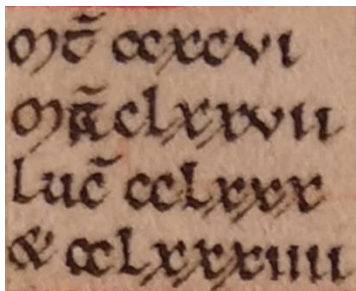 Mt̄ ccxcvi
Mā clxxvii
luc̄ cclxxx
& cclxxxiiii